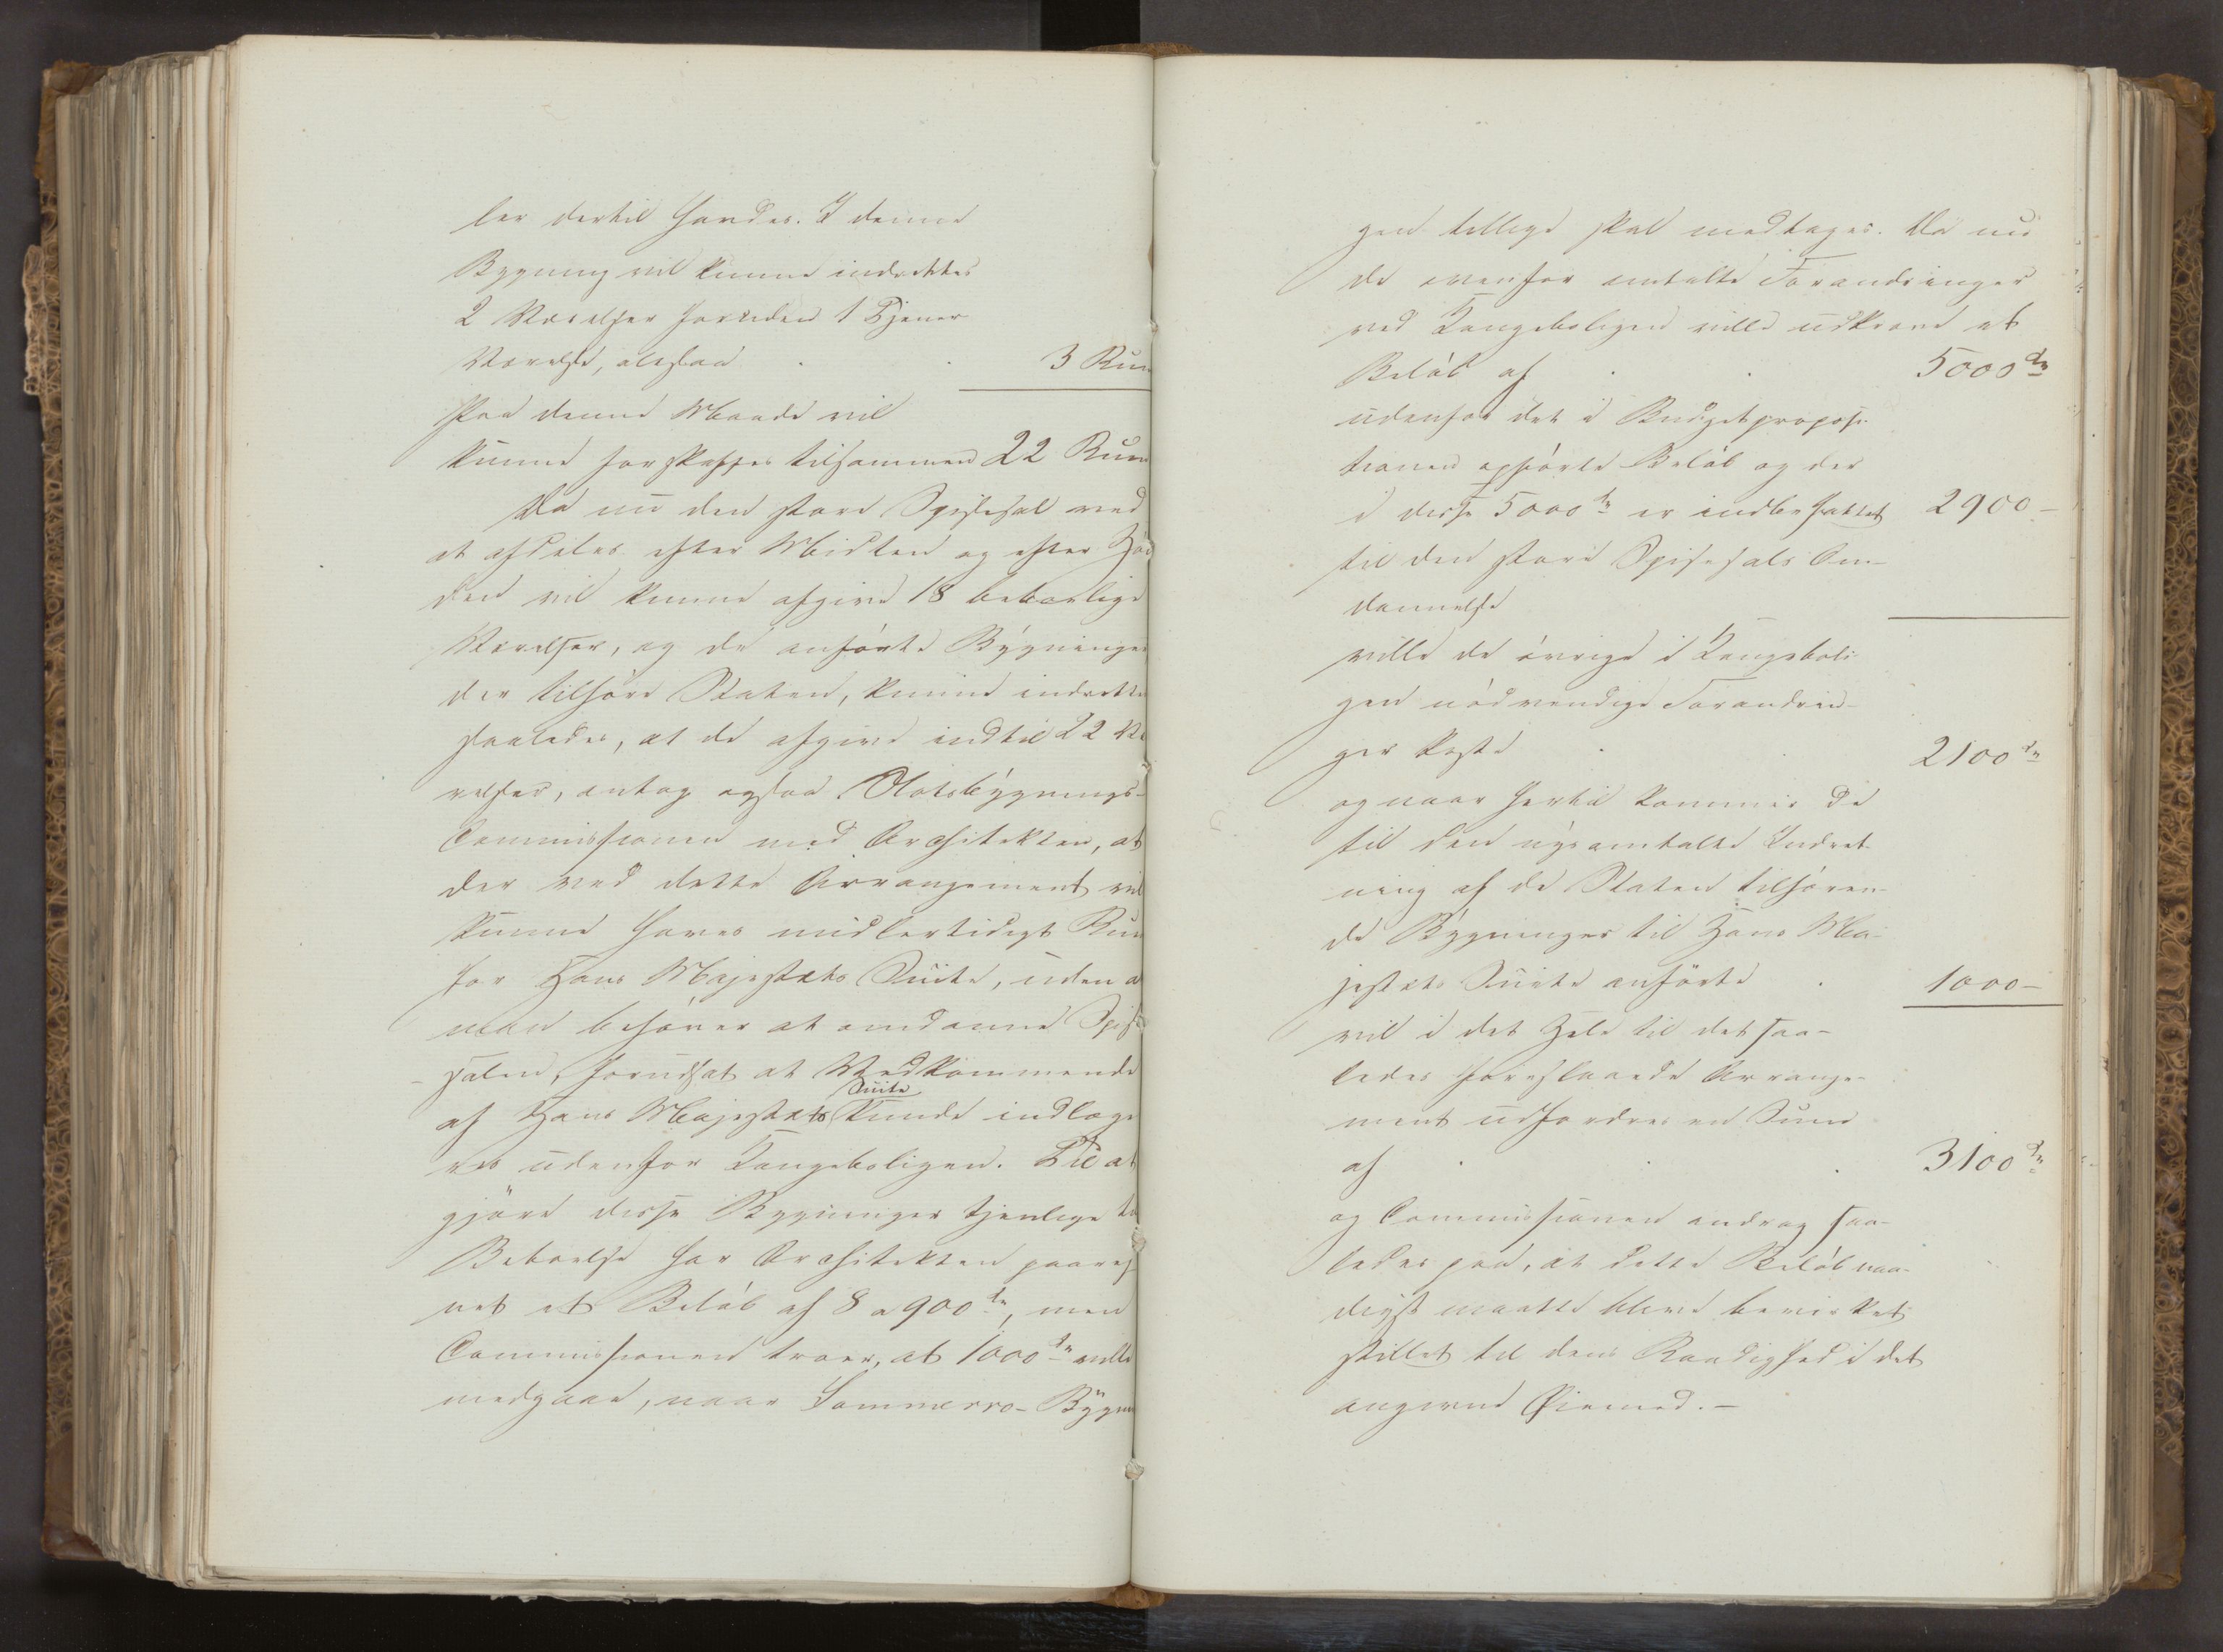 ler dertil havdes. I denne
Bygning vil kunne indrettes
2 Værelser foruden 1 Tjener
Værelse, altsaa . . 3 Rum
Paa denne Maade vil
kunne forskaffes tilsammen 22 Rum
Da nu den store Spisesal ved
at afdeles efter Midten og efter Høi
den vil kunne afgive 18 beboelige
Værelser, og de anførte Bygninger
der tilhøre Staten, kunne indrettes
saaledes, at de afgive indtil 22 Væ
relser, antog ogsaa Slotsbygnings-
Commissionen med Architekten, at
der ved dette Arrangement vil
kunne haves midlertidigt Rum
for Hans Majestæts Suite, uden a
man behøver at omdanne Spise
salen, forudsat at Vedkommende
af Hans Majestæts Suite kunde indloge
res udenfor Kongeboligen. Til at
gjøre disse Bygninger tjenlige til
Beboelse har Architekten paareg
net et Beløb af 8 a 900 dr, men
Commissionen troer, at 1000 dr ville
medgaae, naar Sommerro-Bygnin
gen tillige skal medtages. Da nu
de ovenfor omtalte Forandringer
ved Kongeboligen ville udkræve et
Beløb af . . 5000 dr
udenfor det i Budgetproposi-
tionen opførte Beløb og der
i disse 5000 dr er indbefattet 2900 –
til den store Spisesals Om-
dannelse
ville de øvrige i Kongeboli-
gen nødvendige Forandrin-
ger koste . . 2100 dr
og naar hertil kommer de
til den nysomtalte Indret-
ning af de Staten tilhøren-
de Bygninger til Hans Ma-
jestæts Suite anførte . 1000 –
vil i det Hele til det saa-
ledes foreslaaede Arrange-
ment udfordres en Sum
af . . . 3100 dr
og Commissionen androg saa-
ledes paa, at dette Beløb naa-
digst maatte blive bevirket
stillet til dens Raadighed i det
angivne Øiemed. –